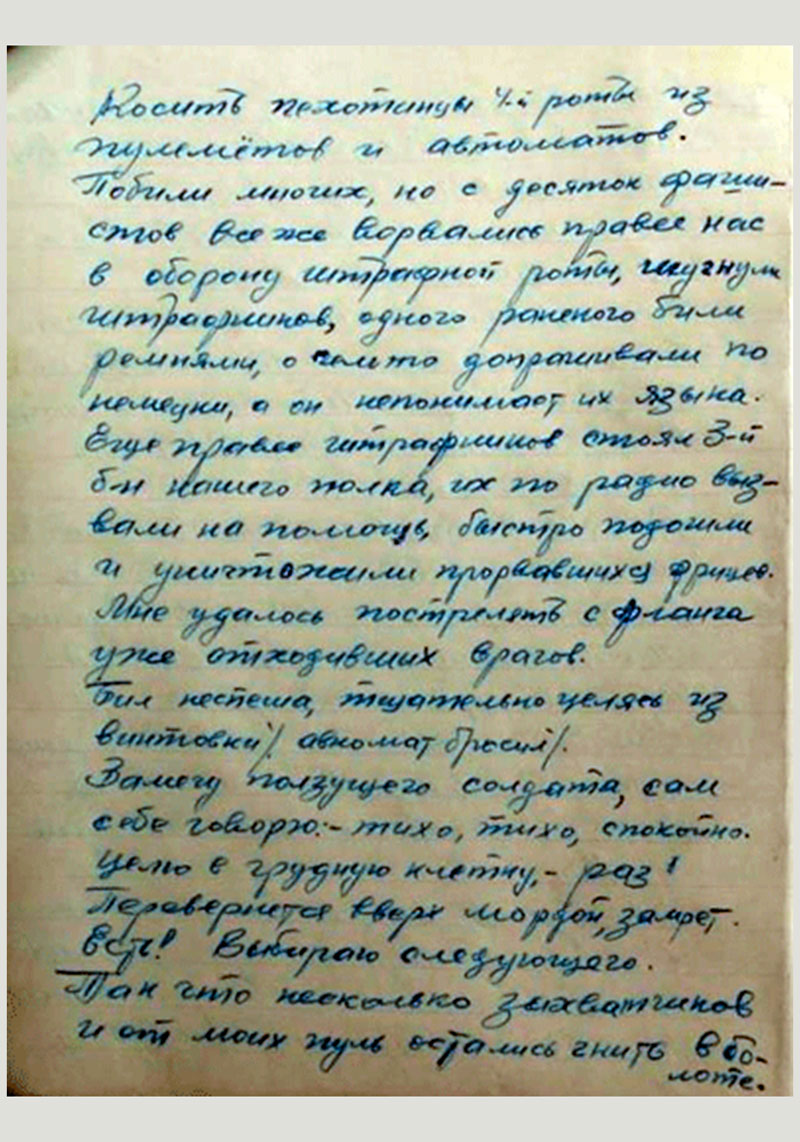 Косить пехотинцы 4-й роты из
пулемётов и автоматов.
Побили многих, но с десяток фаши-
стов все же ворвались правее нас
в оборону штрафной роты, шугнули
штрафников, одного раненого били
ремнями, о чем то допрашивали по
немецки, а он непонимает их языка.
Еще правее штрафников стоял 3-й
б-н нашего полка, их по радио выз-
вали на помощь, быстро подошли
и уничтожили прорвавшихся фрицев.
Мне удалось пострелять с фланга
уже отходивших врагов.
Бил неспеша, тщательно целясь из
винтовки /. авномат бросил /.
Замечу ползущего солдата, сам
себе говорю:- тихо, тихо, спокойно.
Целю в грудную клетку,- раз!
Перевернется вверх мордой, замрет.
Есть! Выбираю следующего.
Так что несколько захватчиков
и от моих пуль остались гнить в бо-
лоте.